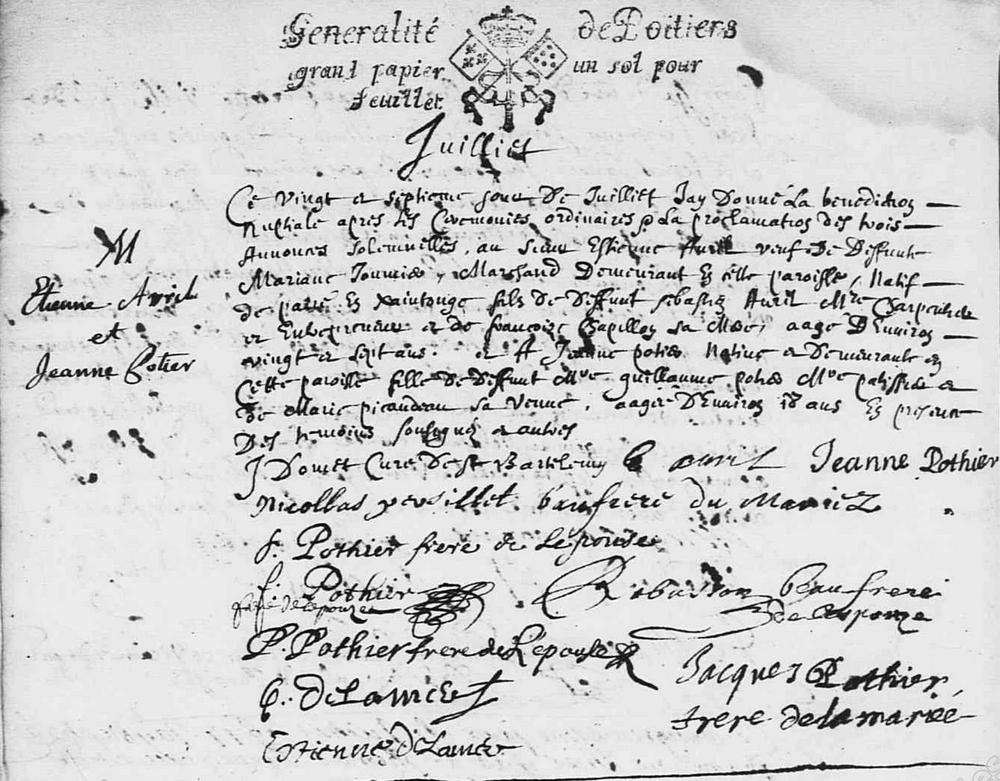 Generalité de Poitiers
grand papier un sol pour
feuillet
Juilliet
M
Etienne Avril
et
Jeanne Potier
Ce vingt et septieme jour De Juilliet Jay Donné La benediction
Nuptiale apres les Ceremonies ordinaires & La proclamation des trois
Annonces solemnelles, au sieur Estienne Avril veuf de Deffunte
Mariane, Marchand Demeurant En cette paroisse, Natif
de En Xaintonge fils De deffunt sebastien Avril Mtre Charpentier
et Entrepreneur et de françoize Papillon sa Mere, aagé D'Environ
vingt et sept ans. et A Jeanne potier Native et Demeurante en
Cette paroisse fille De Deffunt Mre guillaume potier Mre patissier et
de Marie picaudeau sa Veuve, aagee D'Environ 18 ans En presence
Des temoins soulsignez et autres
J Domet Curé De St Bartelemy E avril Jeanne Pothier
Nicollas beaufrere du Mariez
S. Pothier frere de Lepouse
f. Pothier
frere de Lepouze
Robuston beaufrere
de Leponze
P. Pothier frere de Lepouse
Jacques Pothier
frere de la mariée
E. DeLamer
Estienne